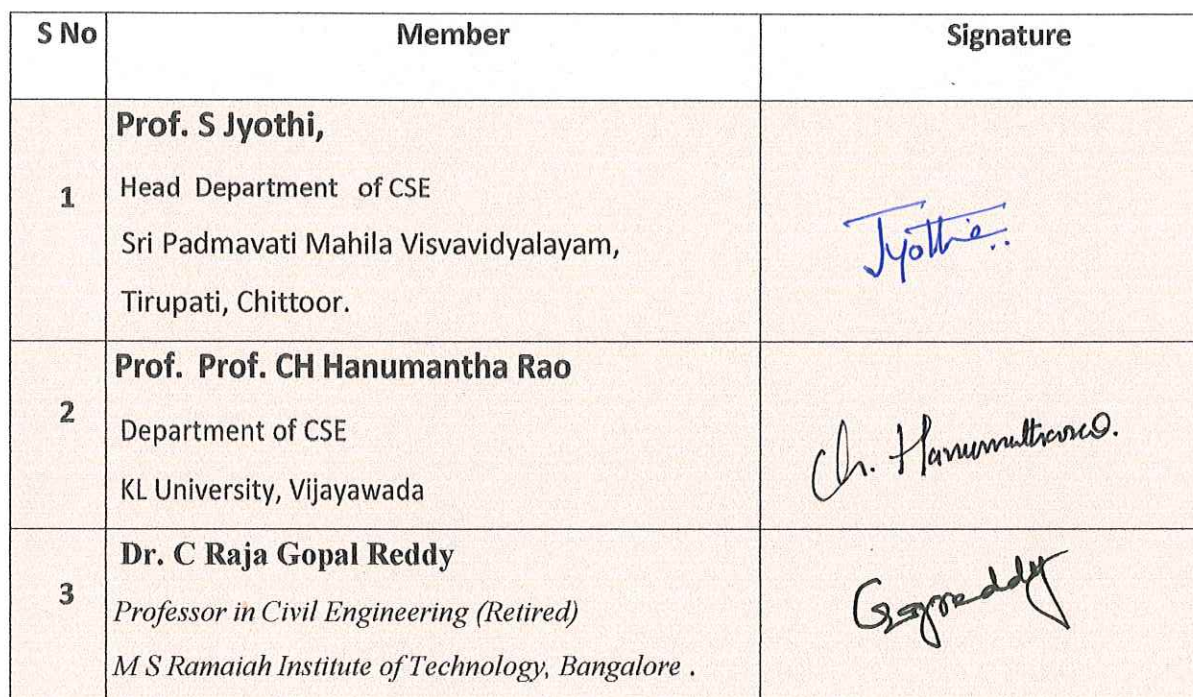 S No Member Signature
Prof. S Jyothi,
1 Head Department of CSE
Sri Padmavati Mahila Visvavidyalayam,
Jyothi..
Tirupati, Chittoor.
Prof. Prof. CH Hanumantha Rao
2 Department of CSE
Ch.
KL University, Vijayawada
Dr. C Raja Gopal Reddy
3 Professor in Civil Engineering (Retired)
M S Ramaiah Institute of Technology, Bangalore .